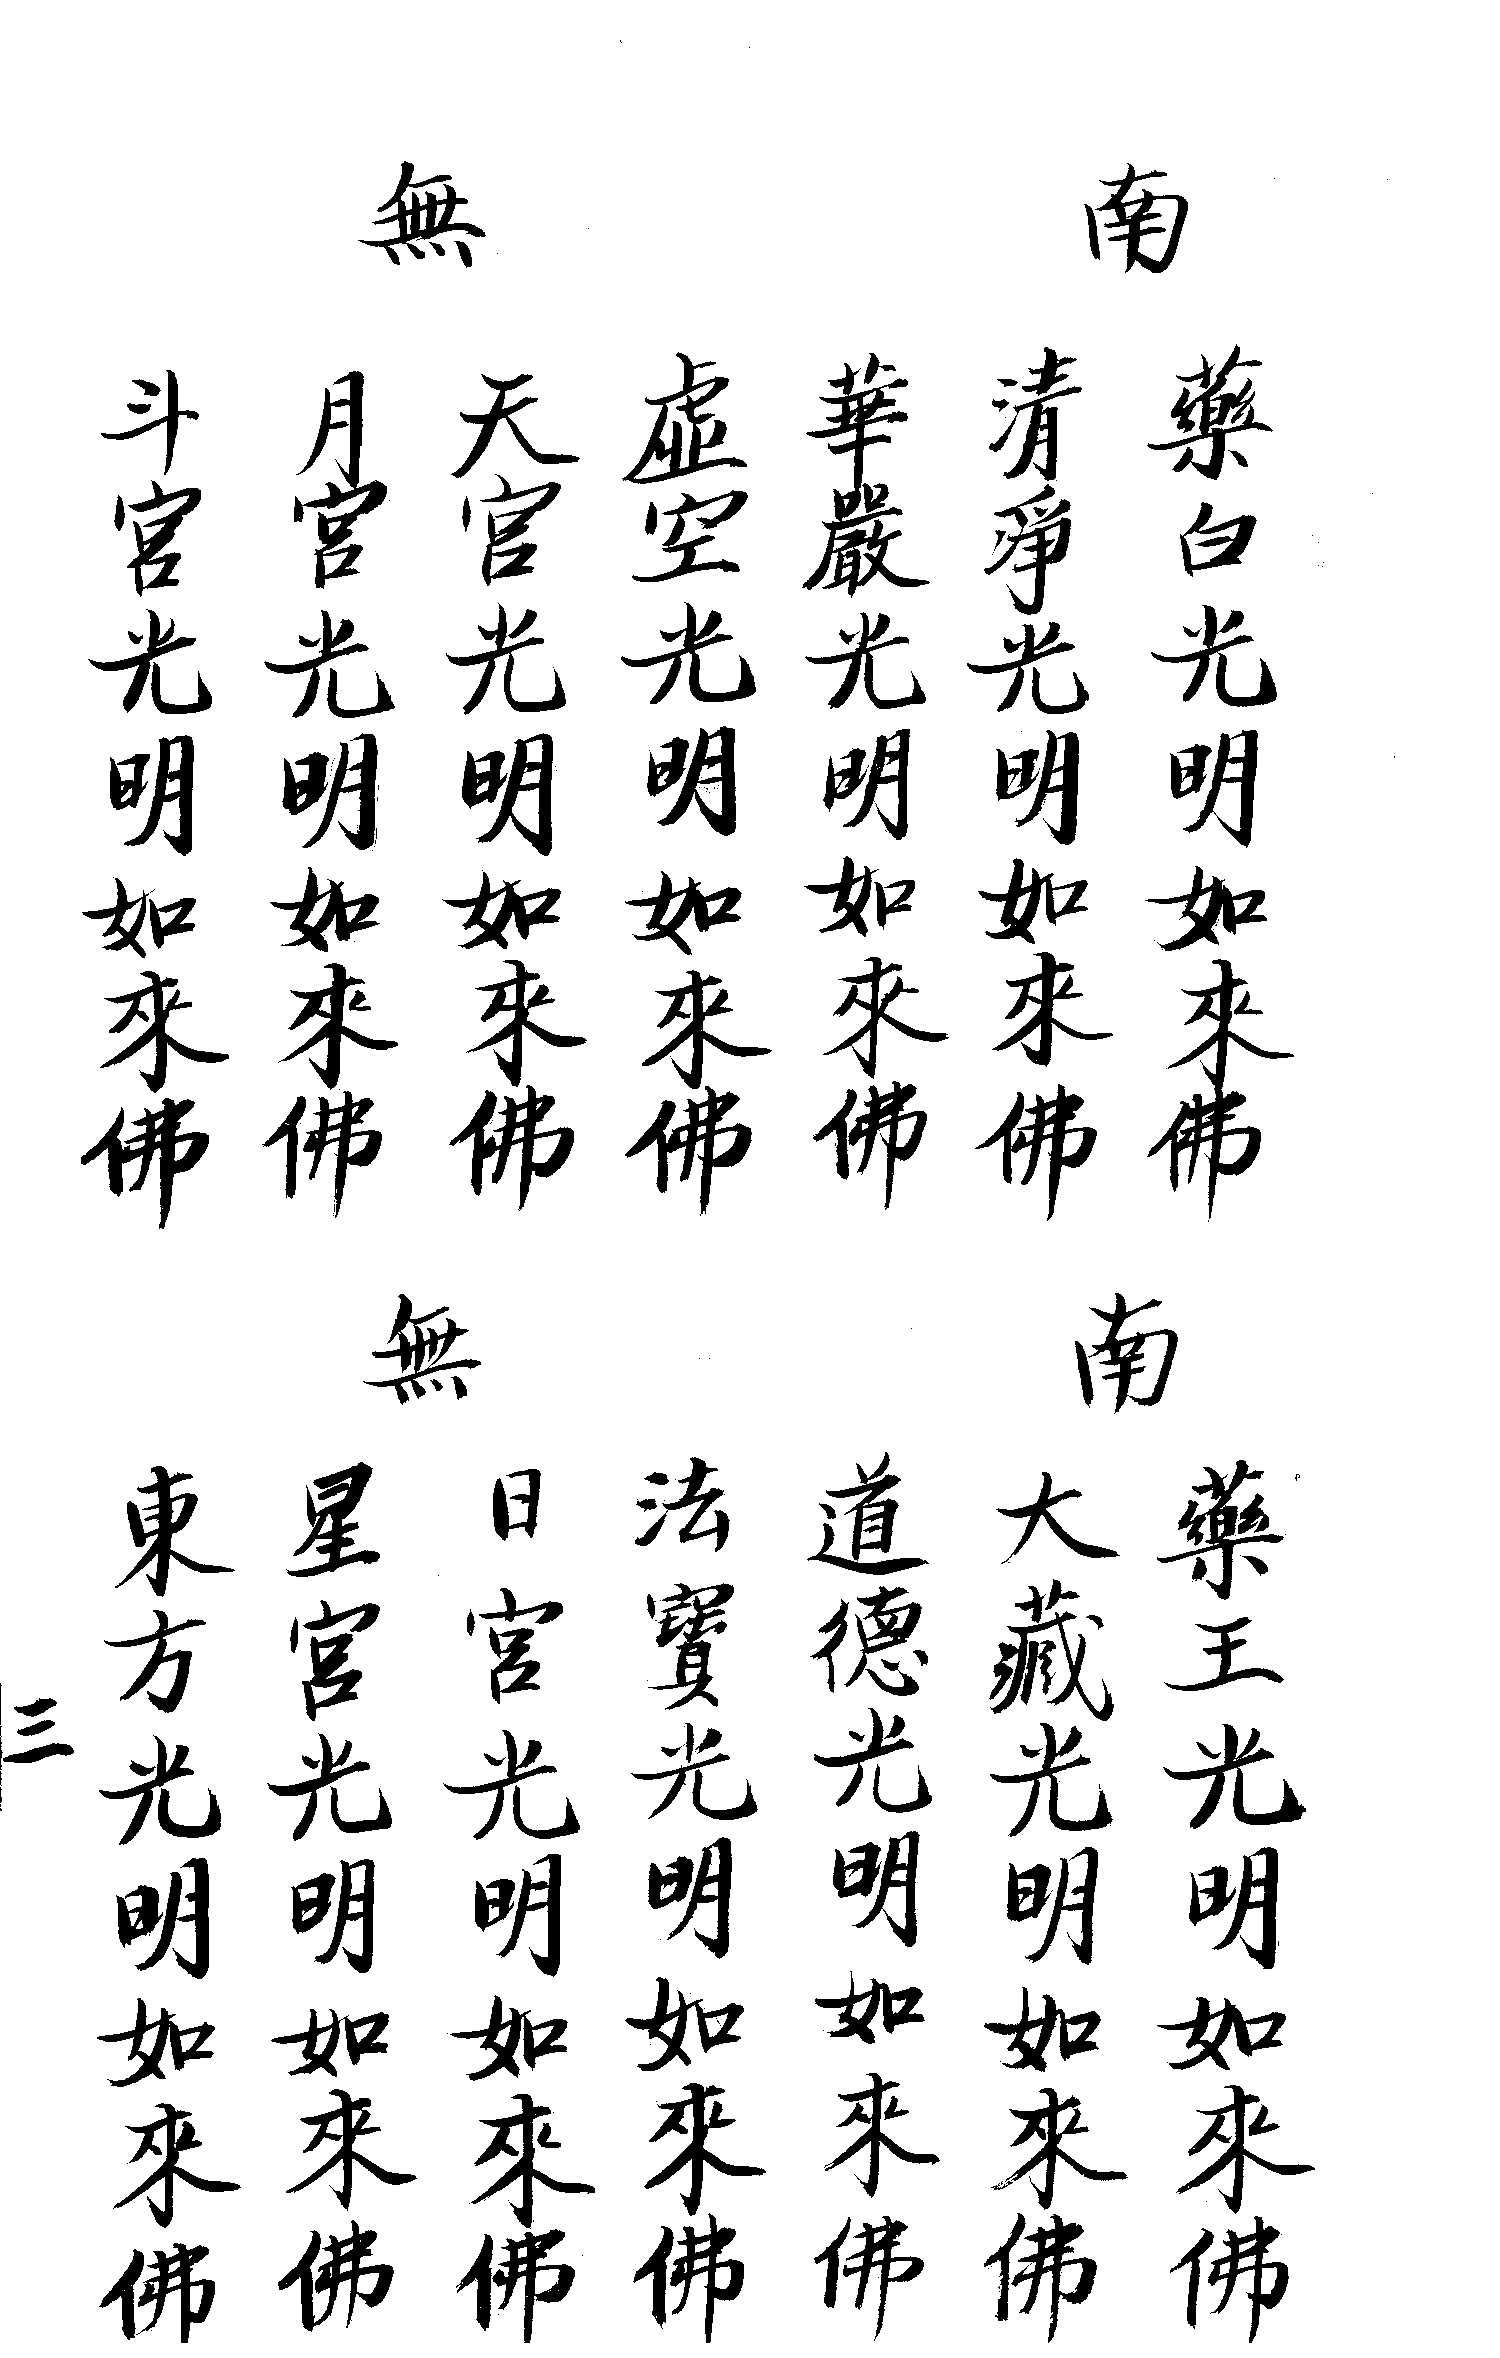 南無
藥白光明如來佛
清淨光明如來佛
華嚴光明如來佛
虛空光明如來佛
天宮光明如來佛
月宮光明如來佛
斗宮光明如來佛
南無
藥王光明如來佛
大藏光明如來佛
道德光明如來佛
法寶光明如來佛
日宮光明如來佛
星宮光明如來佛
東方光明如來佛
三